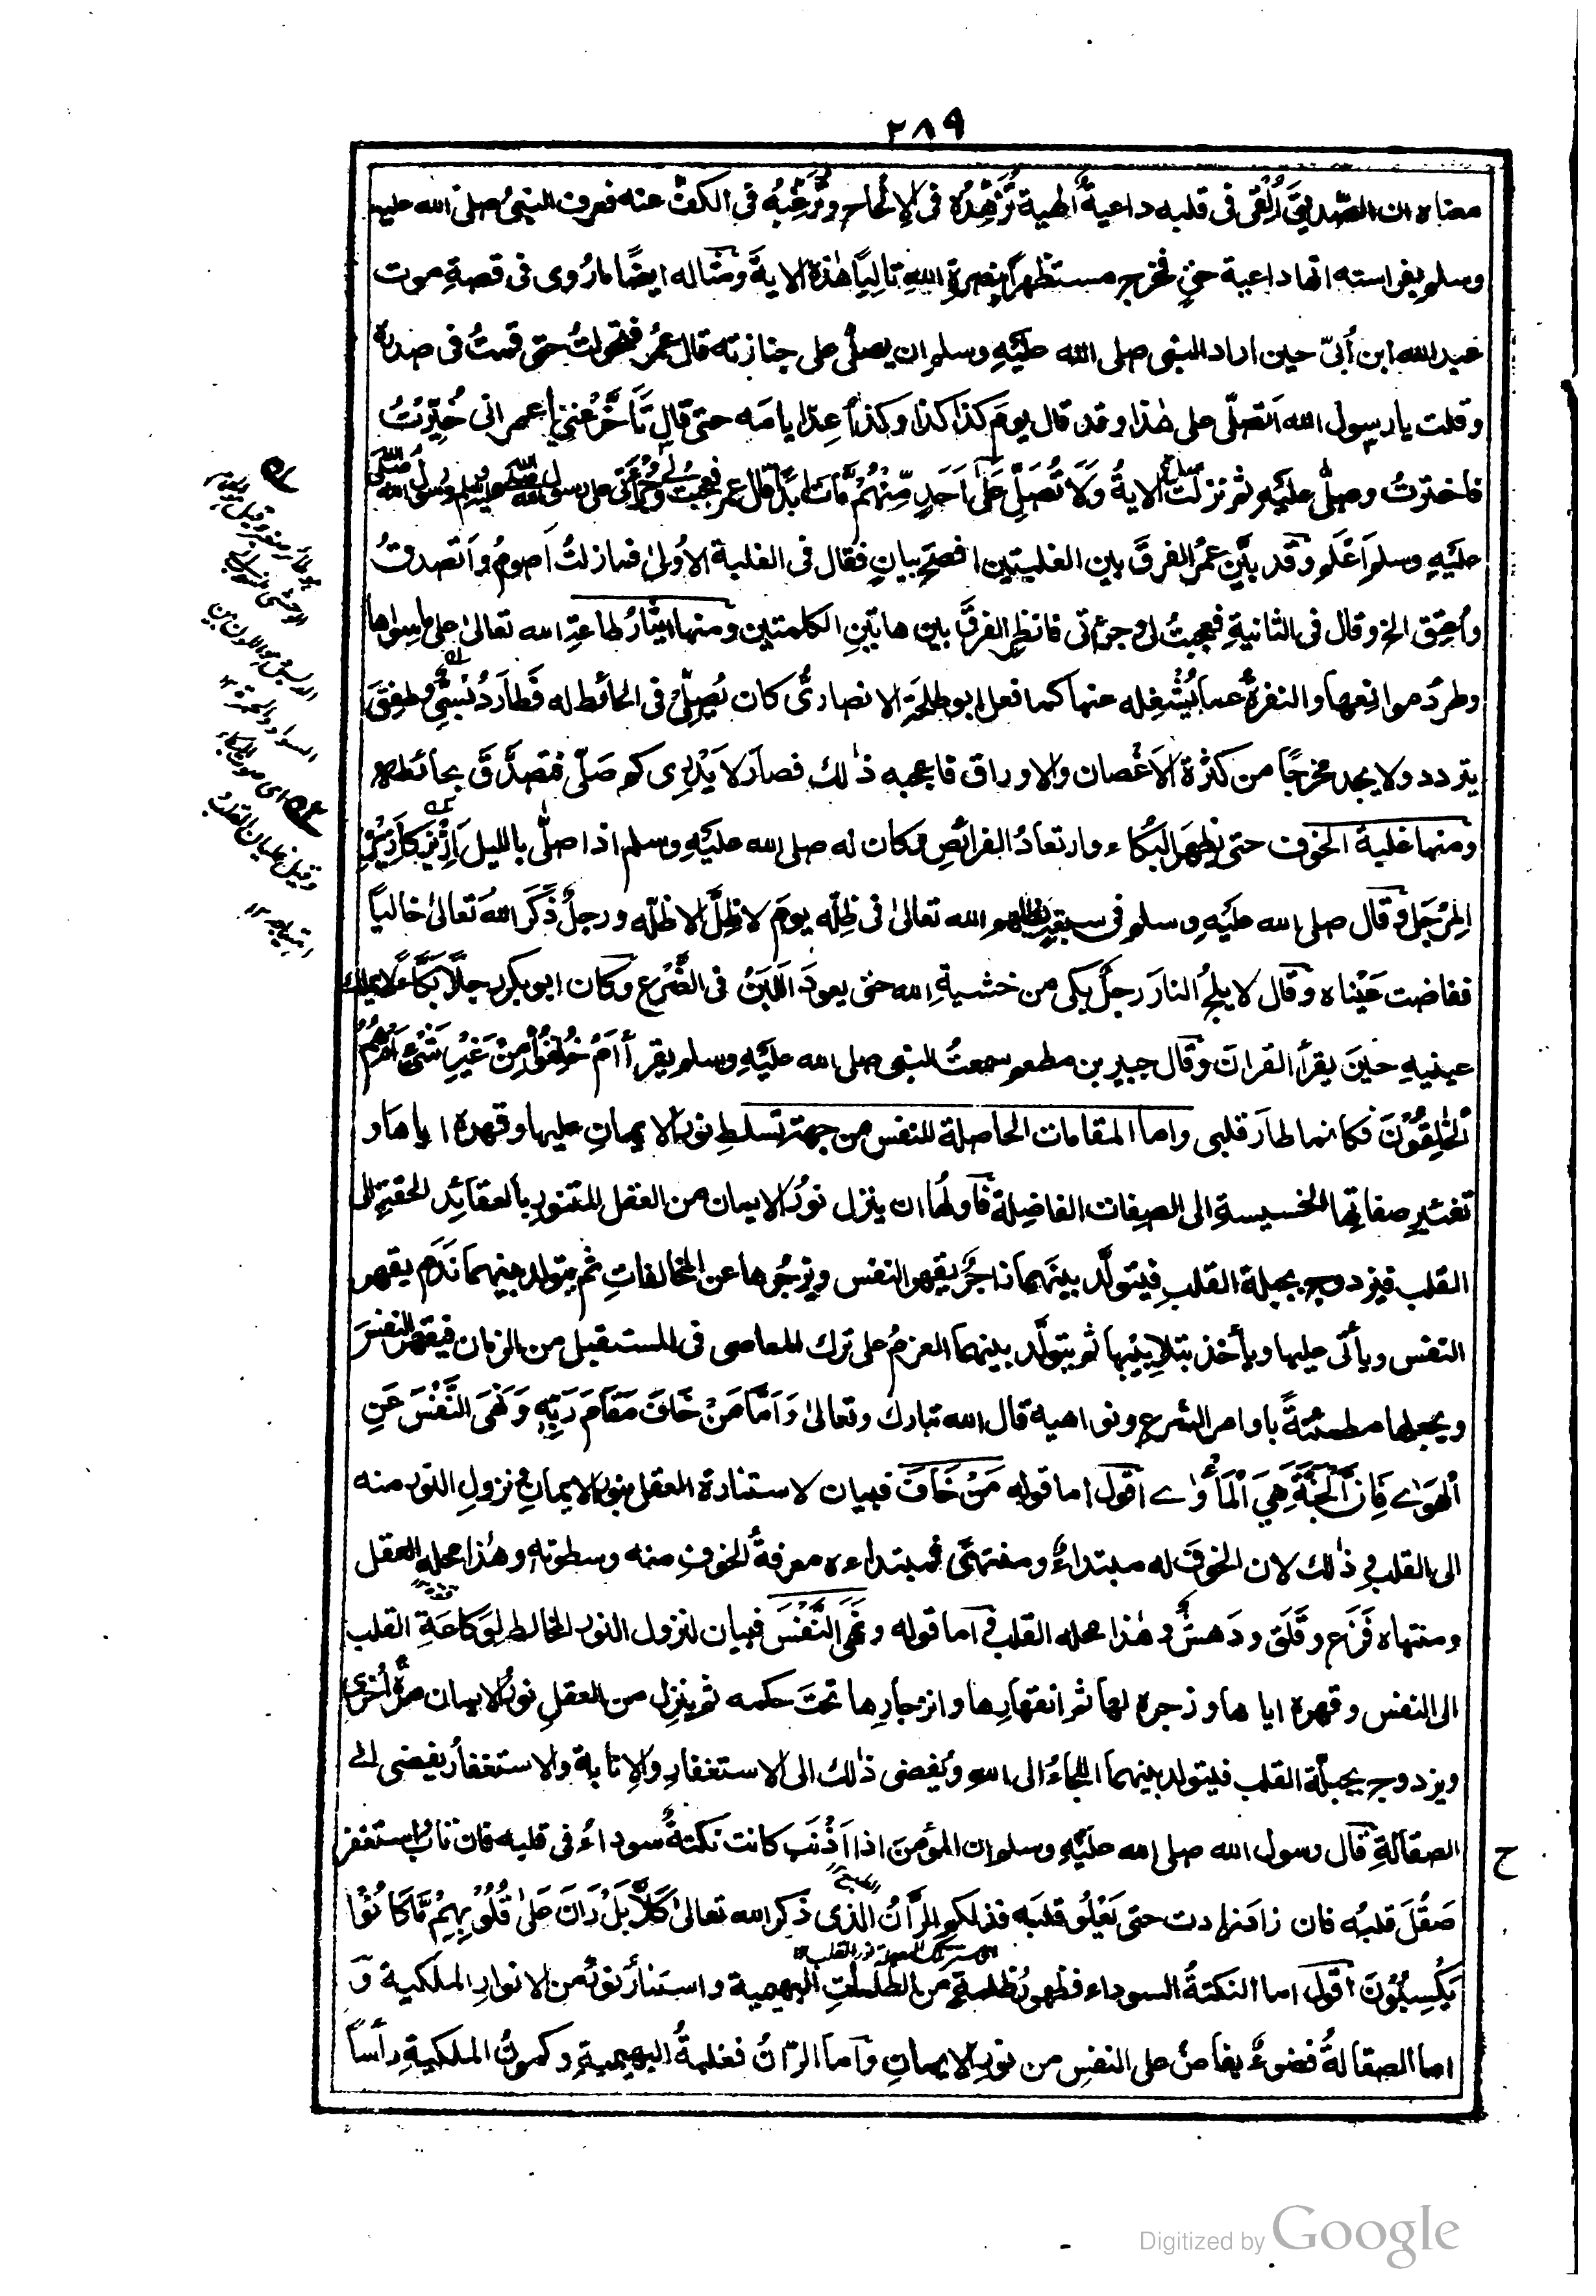 ٢٨٩
معناه ان الصّديقَ اُلْقى فى قلبه داعيةٌ الٰهية تُزَهِّدُهٗ فى الاِلحاح وتُرَغِّبُهٗ فى الكفّ عنه فعرف النبىُّ صلى الله عليه
وسلم بفراسته انها داعية حقٍّ فخرج مستظهراً بنصرة اللهِ تالِيًا هٰذه الاٰيةَ ومثاله ايضًا ما رُوى فى قصةِ موت
عبد الله ابن اُبىّ حين اراد النبى صلى الله عليهِ وسلم ان يصلّى على جنازته قال عمرُ فتحولتُ حتى قمتُ فى صدره
وقلت يا رسول الله اَتصلّى على هٰذا وقد قال يومَ كذا كذا وكذا اَعِدّ ايامَه حتى قال تَأَخَّرْ عنى يا عمر انى خُيّرْتُ
فاخترتُ وصلّى عليهِ ثم نزلت الاٰيةُ وَلَا تُصَلِّ عَلٰى اَحَدٍ مِّنْهُمْ مَّاتَ اَبَدًا قال عمر فعجبتُ لى وجُرْأَتى على رسول الله صلى الله عليه وسلم ورسولُ الله صلى الله
عليهِ وسلم اَعْلَم وقد بيَّن عمرُ الفرقَ بين الغلبتين افصحَ بيانٍ فقال فى الغلبة الاُولىٰ فما زلتُ اَصومُ واَتصدقُ
واُعتِق الخ وقال فى الثانيةِ فعجبتُ لى وجرءتى فانظرِ الفرقَ بين هاتينِ الكلمتين ومنها ايثارُ طاعةِ الله تعالىٰ على ما سواها
وطردُ موانعِها والنفرةُ عما يُشْغِله عنها كما فعل ابو طلحةَ الانصارىُّ كان يُصلّى فى الحائط له فَطارَ دُبْسِىٌّ وطفِقَ
يتردد ولا يجد مخرجًا من كثرة الاَغْصان والاوراق فاعجبه ذٰلك فصار لا يَدْرِى كم صَلّٰى فتصدَّقَ بحائطه
ومنها غلبة الخوف حتى يظهرَ البُكاء وارتعادُ الفرائصِ وكان له صلى الله عليهِ وسلم اذا صلّى بالليل اَزِيْزٌ كَاَزِيْزِ
المِرْجَل وقال صلى الله عليهِ وسلم فى سبعةٍ يظلهم الله تعالىٰ فى ظِلّه يومَ لا ظِلَّ الا ظلّه ورجلٌ ذَكَرَ اللهَ تعالىٰ خاليًا
ففاضت عَيْناه وقال لا يلجُ النارَ رجلٌ بكى من خشيةِ الله حتى يعودَ اللَّبَنُ فى الضَّرْع وكان ابو بكر رجلًا بَكّاءً لا يملك
عينيهِ حينَ يقرأ القراٰنَ وقال جبير بن مطعم سمعتُ النبى صلى الله عليهِ وسلم يقرأ اَمْ خُلِقُوْا مِنْ غَيْرِ شَىْءٍ اَمْ هُمُ
الْخٰلِقُوْنَ فكانما طارَ قلبى واما المقامات الحاصلة للنفس من جهة تسلطِ نورِ الايمانِ عليها وقهره اياها و
تغيّيرِ صفاتِها الخسيسةِ الى الصِفات الفاضِلة فاَولُها ان ينزل نورُ الايمان من العقل المتنورِ بالعقائد الحقةِ الى
القلب فيزدوج بجبلة القلبِ فيتولَّد بينَهما زاجرٌ يقهر النفس ويزجُرها عن المخالفاتِ ثم يتولد بينهما نَدَم يقهر
النفس ويأتى عليها ويأخذ بتلابيبِها ثم يتولَّد بينهما العزمُ على ترك المعاصى فى المستقبل من الزمان فيقهر النفسَ
ويجعلها مطمئنةً باوامر الشرع ونواهيه قال الله تبارك وتعالىٰ وَاَمَّا مَنْ خَافَ مَقَامَ رَبِّهٖ وَنَهَى النَّفْسَ عَنِ
الْهَوٰى فَاِنَّ الْجَنَّةَ هِىَ الْمَأْوٰى اقول اما قوله مَنْ خَافَ فبيان لاستنارة العقل بنور الايمانِ ونزولِ النورِ منه
الى القلب فى ذٰلك لان الخوفَ له مبتداءٌ ومنتهًى فمبتداءه معرفةُ الخوفِ منه وسطوته وهٰذا محله العقل
ومنتهاه فَزَع وقَلَق ودَهشٌ وهٰذا محله القلب واما قوله ونَهَى النَّفْسَ فبيان لنزول النور المخالط لوَكاعَةِ القلب
الى النفس وقهره اياها وزجره لها ثم انقهارِها وانزجارِها تحتَ حكمه ثم ينزِل من العقلِ نورُ الايمان مرةً اُخرٰى
ويزدوج بجبلّة القلب فيتولد بينهما اللجأُ الى اللهِ ويُفضى ذٰلك الى الاستغفارِ والاِنابة والاستغفارُ يفضى الى
الصقالةِ قال رسول الله صلى الله عليهِ وسلم ان المؤمنَ اذا اَذْنَبَ كانت نكتةٌ سوداءُ فى قلبه فان تابَ واستغفر
صَقُلَ قلبُه فان زاد زادت حتى تَعْلُو قلبَه فذلكم الرَّانُ الذى ذكر الله تعالىٰ كَلَّا بَلْ رَانَ عَلٰى قُلُوْبِهِمْ مَّا كَانُوْا
يَكْسِبُوْنَ اقول اما النكتةُ السوداء فظهورُ ظلمةٍ من الظُلُماتِ البهيمية واستتارُ نورٍ من الانوارِ الملكية و
اما الصقالةُ فضوءٌ يفاض على النفسِ من نورِ الايمانِ واما الرّانُ فغلبةُ البهيميةِ وكمونُ الملكيةِ رأسًا
ح
Digitized by Google